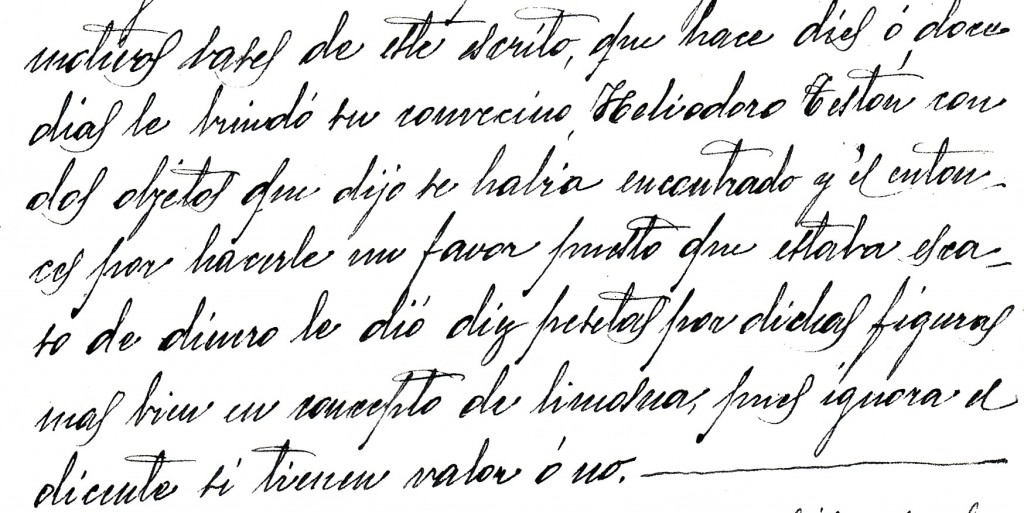 motivos bases de este escrito, que hace dies ó doce
dias le brindó su convecino, Heliodoro Testón con
dos objetos que dijo se habia encontrado y él enton-
ces por hacerle un favor puesto que estaba esca-
so de dinero le dió diez pesetas por dichas figuras
mas bien en concepto de limosna, pues ignora el
dicente si tienen valor ó no.